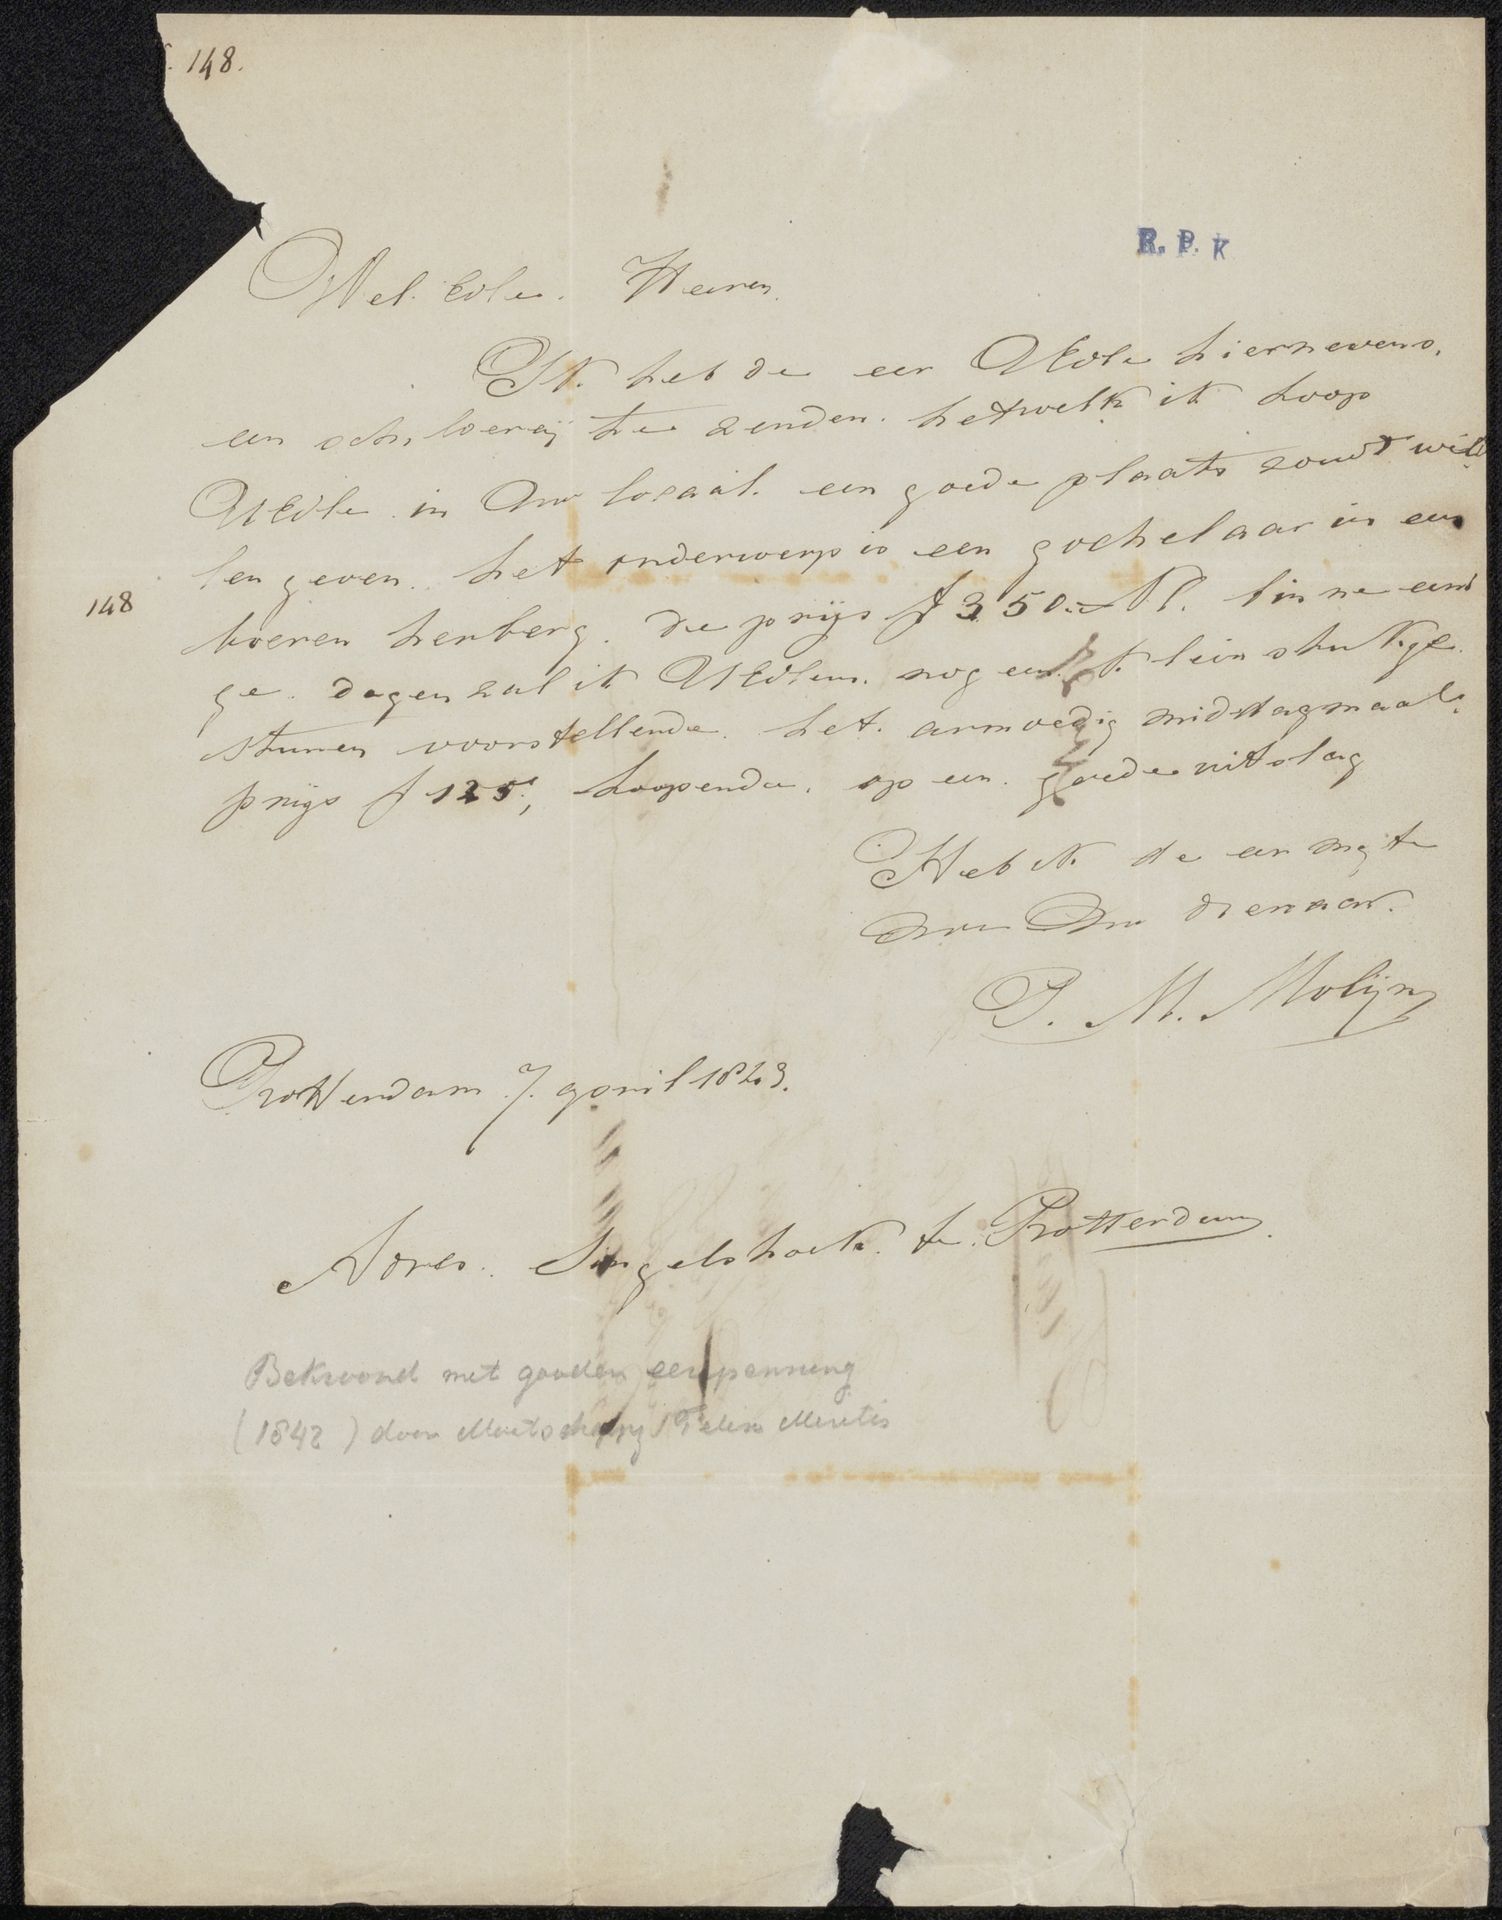 148.
R. P. K
Wel. Edle. Heeren.
Ik. heb de eer UEdle hiernevens.
een schilderij te zenden. hetwelk ik hoop
UEdle in Uw locaal. een goede plaats zoudt wil
len geven. het onderwerp is een gochelaar in een
148
boeren herberg. de prijs f 350.- Nl. binne eeni
ge. dagen zal ik UEdlens. nog een klein stukje
sturen voorstellende. het. armoedig middagmaal.
prijs f 125, hoopende. op een. goede uitslag
Heb ik de eer mij te
Uw dienaar.
P. M. Molijn
Rotterdam 7. april 1843.
Adres. Singelshoek. te. Rotterdam.
Bekroond met gouden eerepenning
(1842) door Maatschappij Felix Meritis